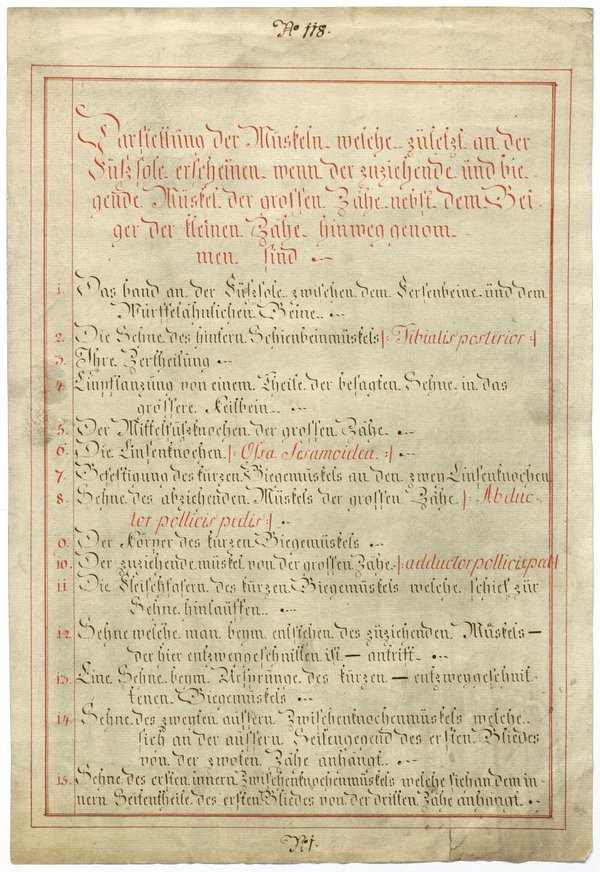 No 118.
Darstellung der Müskeln welche zuletzt an der
Füßsole erscheinen wenn der zuziehende und bie-
gende Müskel der grossen Zähe nebst dem Bei-
ger der kleinen Zähe hinweg genom-
men sind
1. Das band an der Füßsole zwischen dem Fersenbeine und dem
Würffelähnlichen Beine
2. Die Sehne des hintern Schienbeinmüskels |: Tibialis posterior :|
3. Ihre Zertheilung
4. Einpflanzung von einem Theile der besagten Sehne in das
grössere Keilbein
5. Der Mittelfüßknochen der grossen Zähe
6. Die Linsenknochen |: Ossa Sesamoidea :|
7. Befestigung des kürzen Biegemüskels an den zwey Linsenknochen
8. Sehne des abziehenden Müskels der grossen Zähe |: Abduc-
tor pollicis pedis :|
9. Der Körper des kürzen Biegemüskels
10. Der zuziehende müskel von der grossen Zähe |: adductor pollicis ped :|
11 Die Fleischfasern des kürzen Biegemüskels welche schief zür
Sehne hinlauffen
12. Sehne welche man beym entstehen des züziehenden Müskels —
der hier entzweygeschnitten ist — antrifft
13. Eine Sehne beym Uersprünge des kürzen — entzweygeschnit-
tenen Biegemüskels
14. Sehne des zweyten aüssern Zwischenknochenmüskels welche
sich an der aüssern Seitengegend des ersten Gliedes
von der zwoten Zähe anhängt
15. Sehne des ersten innern Zwischenknochenmüskels welche sich an dem in-
nern Seitentheile des ersten Gliedes von der dritten Zähe anhängt